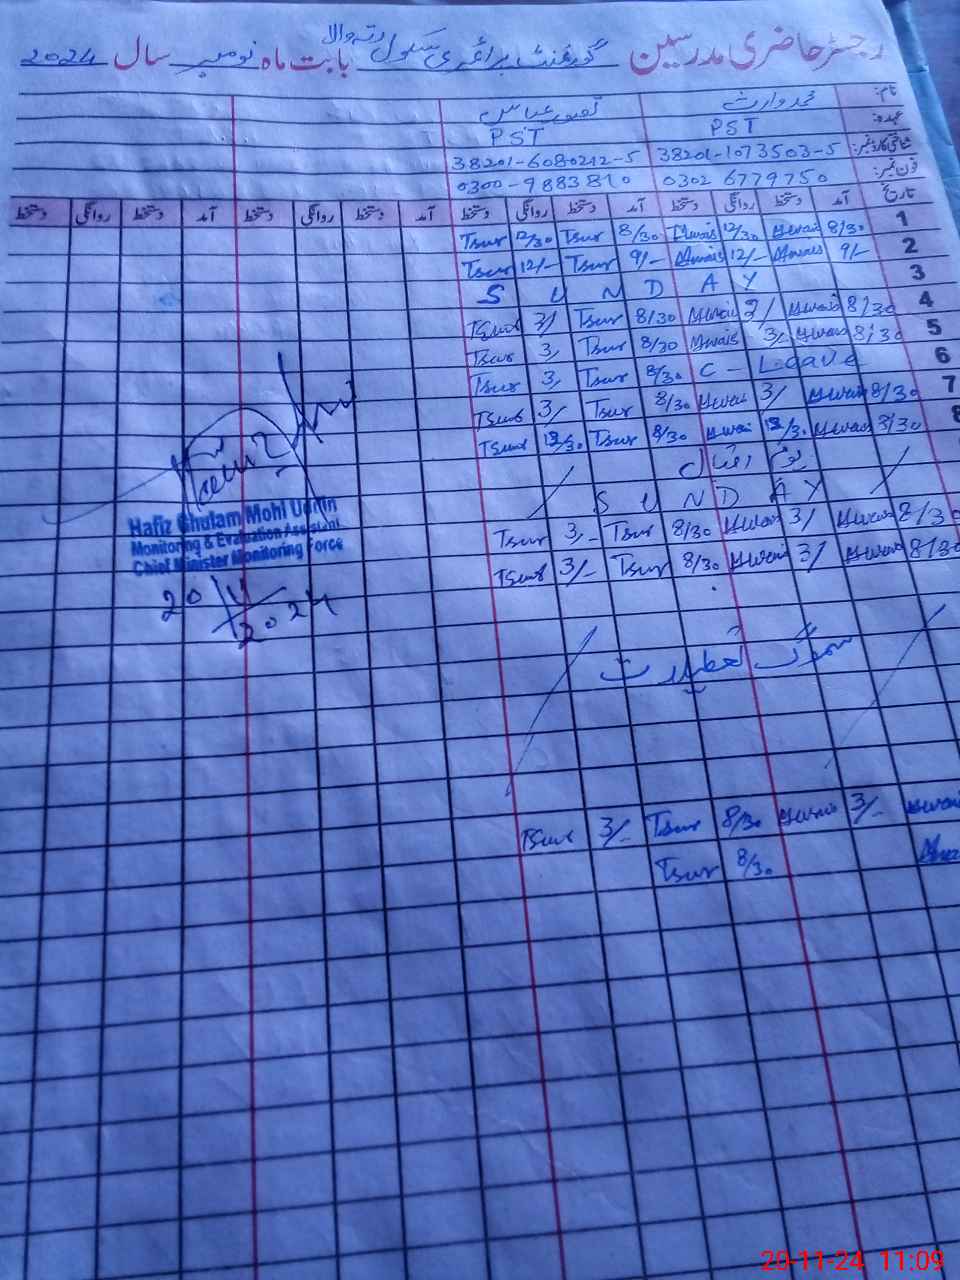 رجسٹر حاضری مدرسین گورنمنٹ پرائمری سکول رتہ والا بابت ماہ نومبر سال 2024
نام: محمد وارث تصور عباس
عہدہ: PST PST
شناختی کارڈ نمبر: 38201-1073503-5 38201-6080212-5
فون نمبر: 0302 6779750 0300-9883810
تاریخ آمد دستخط روانگی دستخط آمد دستخط روانگی دستخط آمد دستخط روانگی دستخط آمد دستخط روانگی دستخط
1 8/30 12/30 8/30 Tsur 12/30 Tsur
2 9/- 12/- 9/- Tsur 12/- Tsur
3 S U N D A Y
4 8/30 3/ 8/30 Tsur 3/ Tsur
5 8/30 3/- 8/30 Tsur 3, Tsur
6 C - Leave 8/30 Tsur 3, Tsur
7 8/30 3/ 8/30 Tsur 3/ Tsur
8 8/30 12/30 8/30 Tsur 12/30 Tsur
یوم اقبال
S U N D A Y
8/30 3/ 8/30 Tsur 3,- Tsur
8/30 3/ 8/30 Tsur 3/- Tsur
سموگ تعطیلات
3/- 8/30 Tsur 3/- Tsur
8/30 Tsur
Hafiz Ghulam Mohi Uddin
Monitoring & Evaluation Assistant
Chief Minister Monitoring Force
20/11/2024
20-11-24 11:09